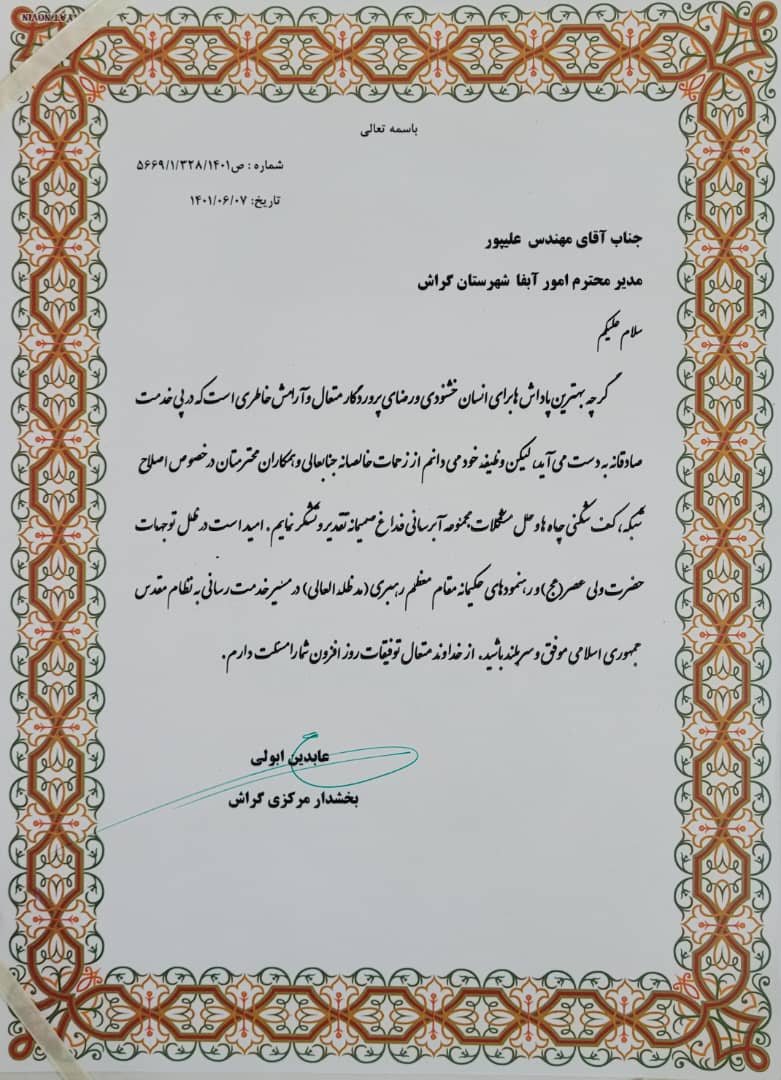 باسمه تعالی
شماره : ص۵۶۶۹/۱/۳۲۸/۱۴۰۱
تاریخ: ۱۴۰۱/۰۶/۰۷
جناب آقای مهندس علیپور
مدیر محترم امور آبفا شهرستان گراش
سلام علیکم
گرچه بهترین پاداش ها برای انسان خشنودی و رضای پروردگار متعال و آرامش خاطری است که در پی خدمت
صادقانه به دست می آید، لیکن وظیفه خود می دانم از زحمات خالصانه جنابعالی و همکاران محترمتان در خصوص اصلاح
شبکه، کف شکنی چاه ها و حل مشکلات مجموعه آبرسانی فداغ صمیمانه تقدیر و تشکر نمایم. امید است در ظل توجهات
حضرت ولی عصر(عج) و رهنمودهای حکیمانه مقام معظم رهبری (مد ظله العالی) در مسیر خدمت رسانی به نظام مقدس
جمهوری اسلامی موفق و سربلند باشید. از خداوند متعال توفیقات روز افزون شما را مسئلت دارم.
عابدین ابولی
بخشدار مرکزی گراش